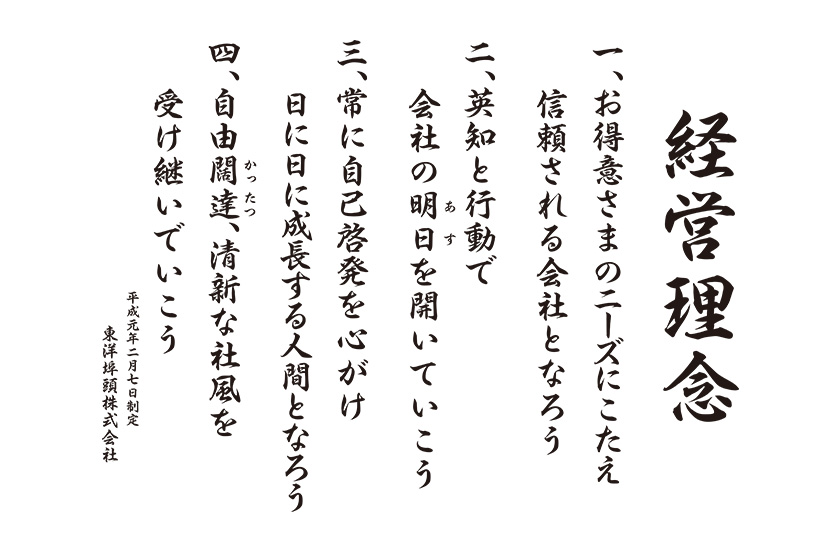 経営理念
一、お得意さまのニーズにこたえ
信頼される会社となろう
二、英知と行動で
会社の明日を開いていこう
あす
三、常に自己啓発を心がけ
日に日に成長する人間となろう
四、自由闊達、清新な社風を
かったつ
受け継いでいこう
平成元年二月七日制定
東洋埠頭株式会社